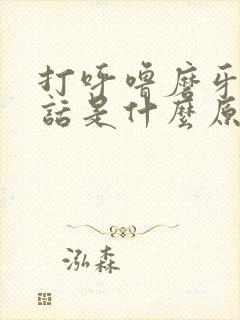 打呼噜磨牙
話是什麼原
泓森